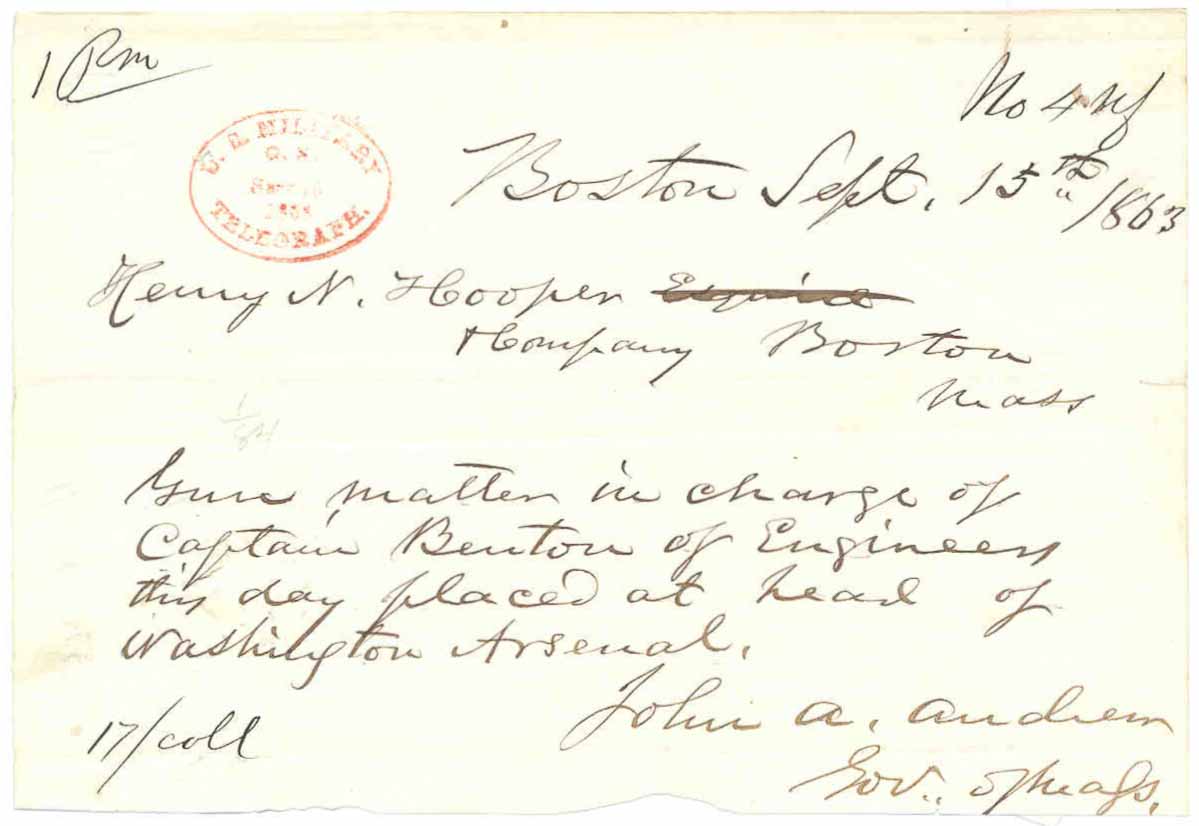 1 Pm
No 4
U. S. MILITARY
TELEGRAPH.
Boston Sept. 15th /1863
Henry N. Hooper Esquire
& Company Boston
Mass
Gun matter in charge of
Captain Benton of Engineers
this day placed at head of
Washington Arsenal.
John A. Andrew
Gov. of Mass.
17/coll